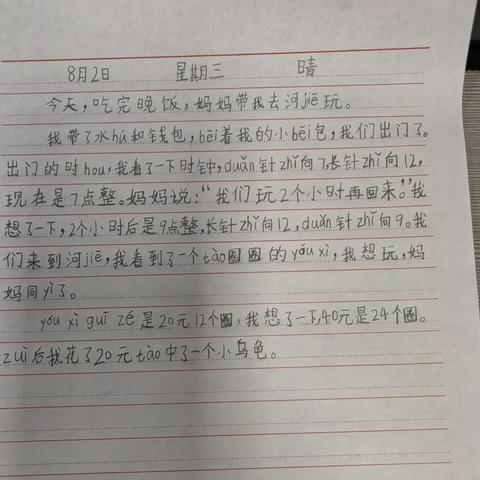 8月2日 星期三 晴
今天，吃完晚饭，妈妈带我去河jiē玩。
我带了水hú和钱包，bēi着我的小bēi包，我们出门了。
出门的时hou，我看了一下时钟，duǎn针zhǐ向7，长针zhǐ向12，
现在是7点整。妈妈说：“我们玩2个小时再回来。”我
想了一下，2个小时后是9点整，长针zhǐ向12，duǎn针zhǐ向9。我
们来到河jiē，我看到了一个tào圈圈的yóu xì，我想玩，妈
妈同yì了。
yóu xì guī zé是20元12个圈，我想了一下，40元是24个圈。
zuì后我花了20元tào中了一个小乌龟。